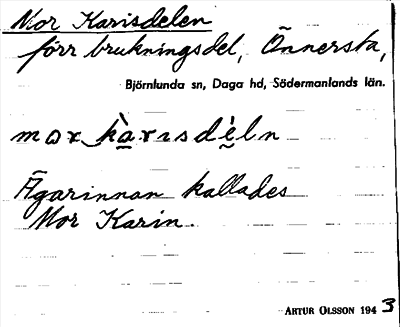 Mor Karisdelen
förr brukningsdel, Önnersta,
Björnlunda sn, Daga hd, Södermanlands län.
mor kàrısdèln
Ägarinnan kallades
Mor Karin.
ARTUR OLSSON 1943